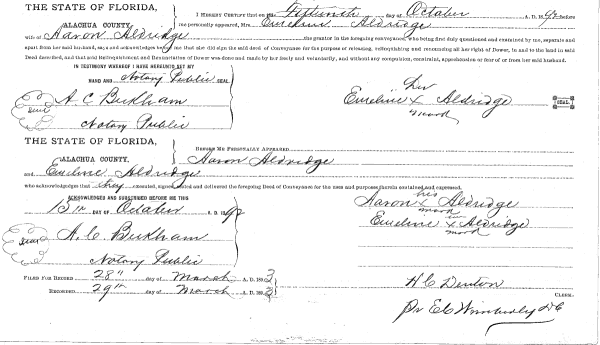 THE STATE OF FLORIDA,
ALACHUA COUNTY.
I HEREBY CERTIFY that on this Fifteenth day of October A. D. 1892 before
me personally appeared, Mrs. Emeline Aldridge
wife of Aaron Aldridge the grantor in the foregoing conveyance, who being first duly questioned and examined by me, separate and
apart from her said husband, says and acknowledges to me that she did sign the said deed of Conveyance for the purpose of releasing, relinquishing and renouncing all her right of Dower, in and to the land in said
Deed described, and that said Relinquishment and Renunciation of Dower was done and made by her freely and voluntarily, and without any compulsion, constraint, apprehension or fear of or from her said husband.
IN TESTIMONY WHEREOF I HAVE HEREUNTO SET MY
HAND AND Notary Public SEAL
her
A C Bickham
Emeline x Aldridge SEAL
Seal
mark
Notary Public
THE STATE OF FLORIDA,
ALACHUA COUNTY.
BEFORE ME PERSONALLY APPEARED Aaron Aldridge
and Emeline Aldridge
who acknowledges that they executed, signed and delivered the foregoing Deed of Conveyance for the uses and purposes therein contained and expressed.
ACKNOWLEDGED AND SUBSCRIBED BEFORE ME THIS
his
15th DAY OF October A. D. 1892
Aaron x Aldridge
mark
her
Emeline x Aldridge
mark
Seal
A. C. Bickham
Notary Public
FILED FOR RECORD 28th day of March A. D. 1893
H C Denton
RECORDED 29th day of March A. D. 1893
CLERK.
Pr E C Wimberly D C